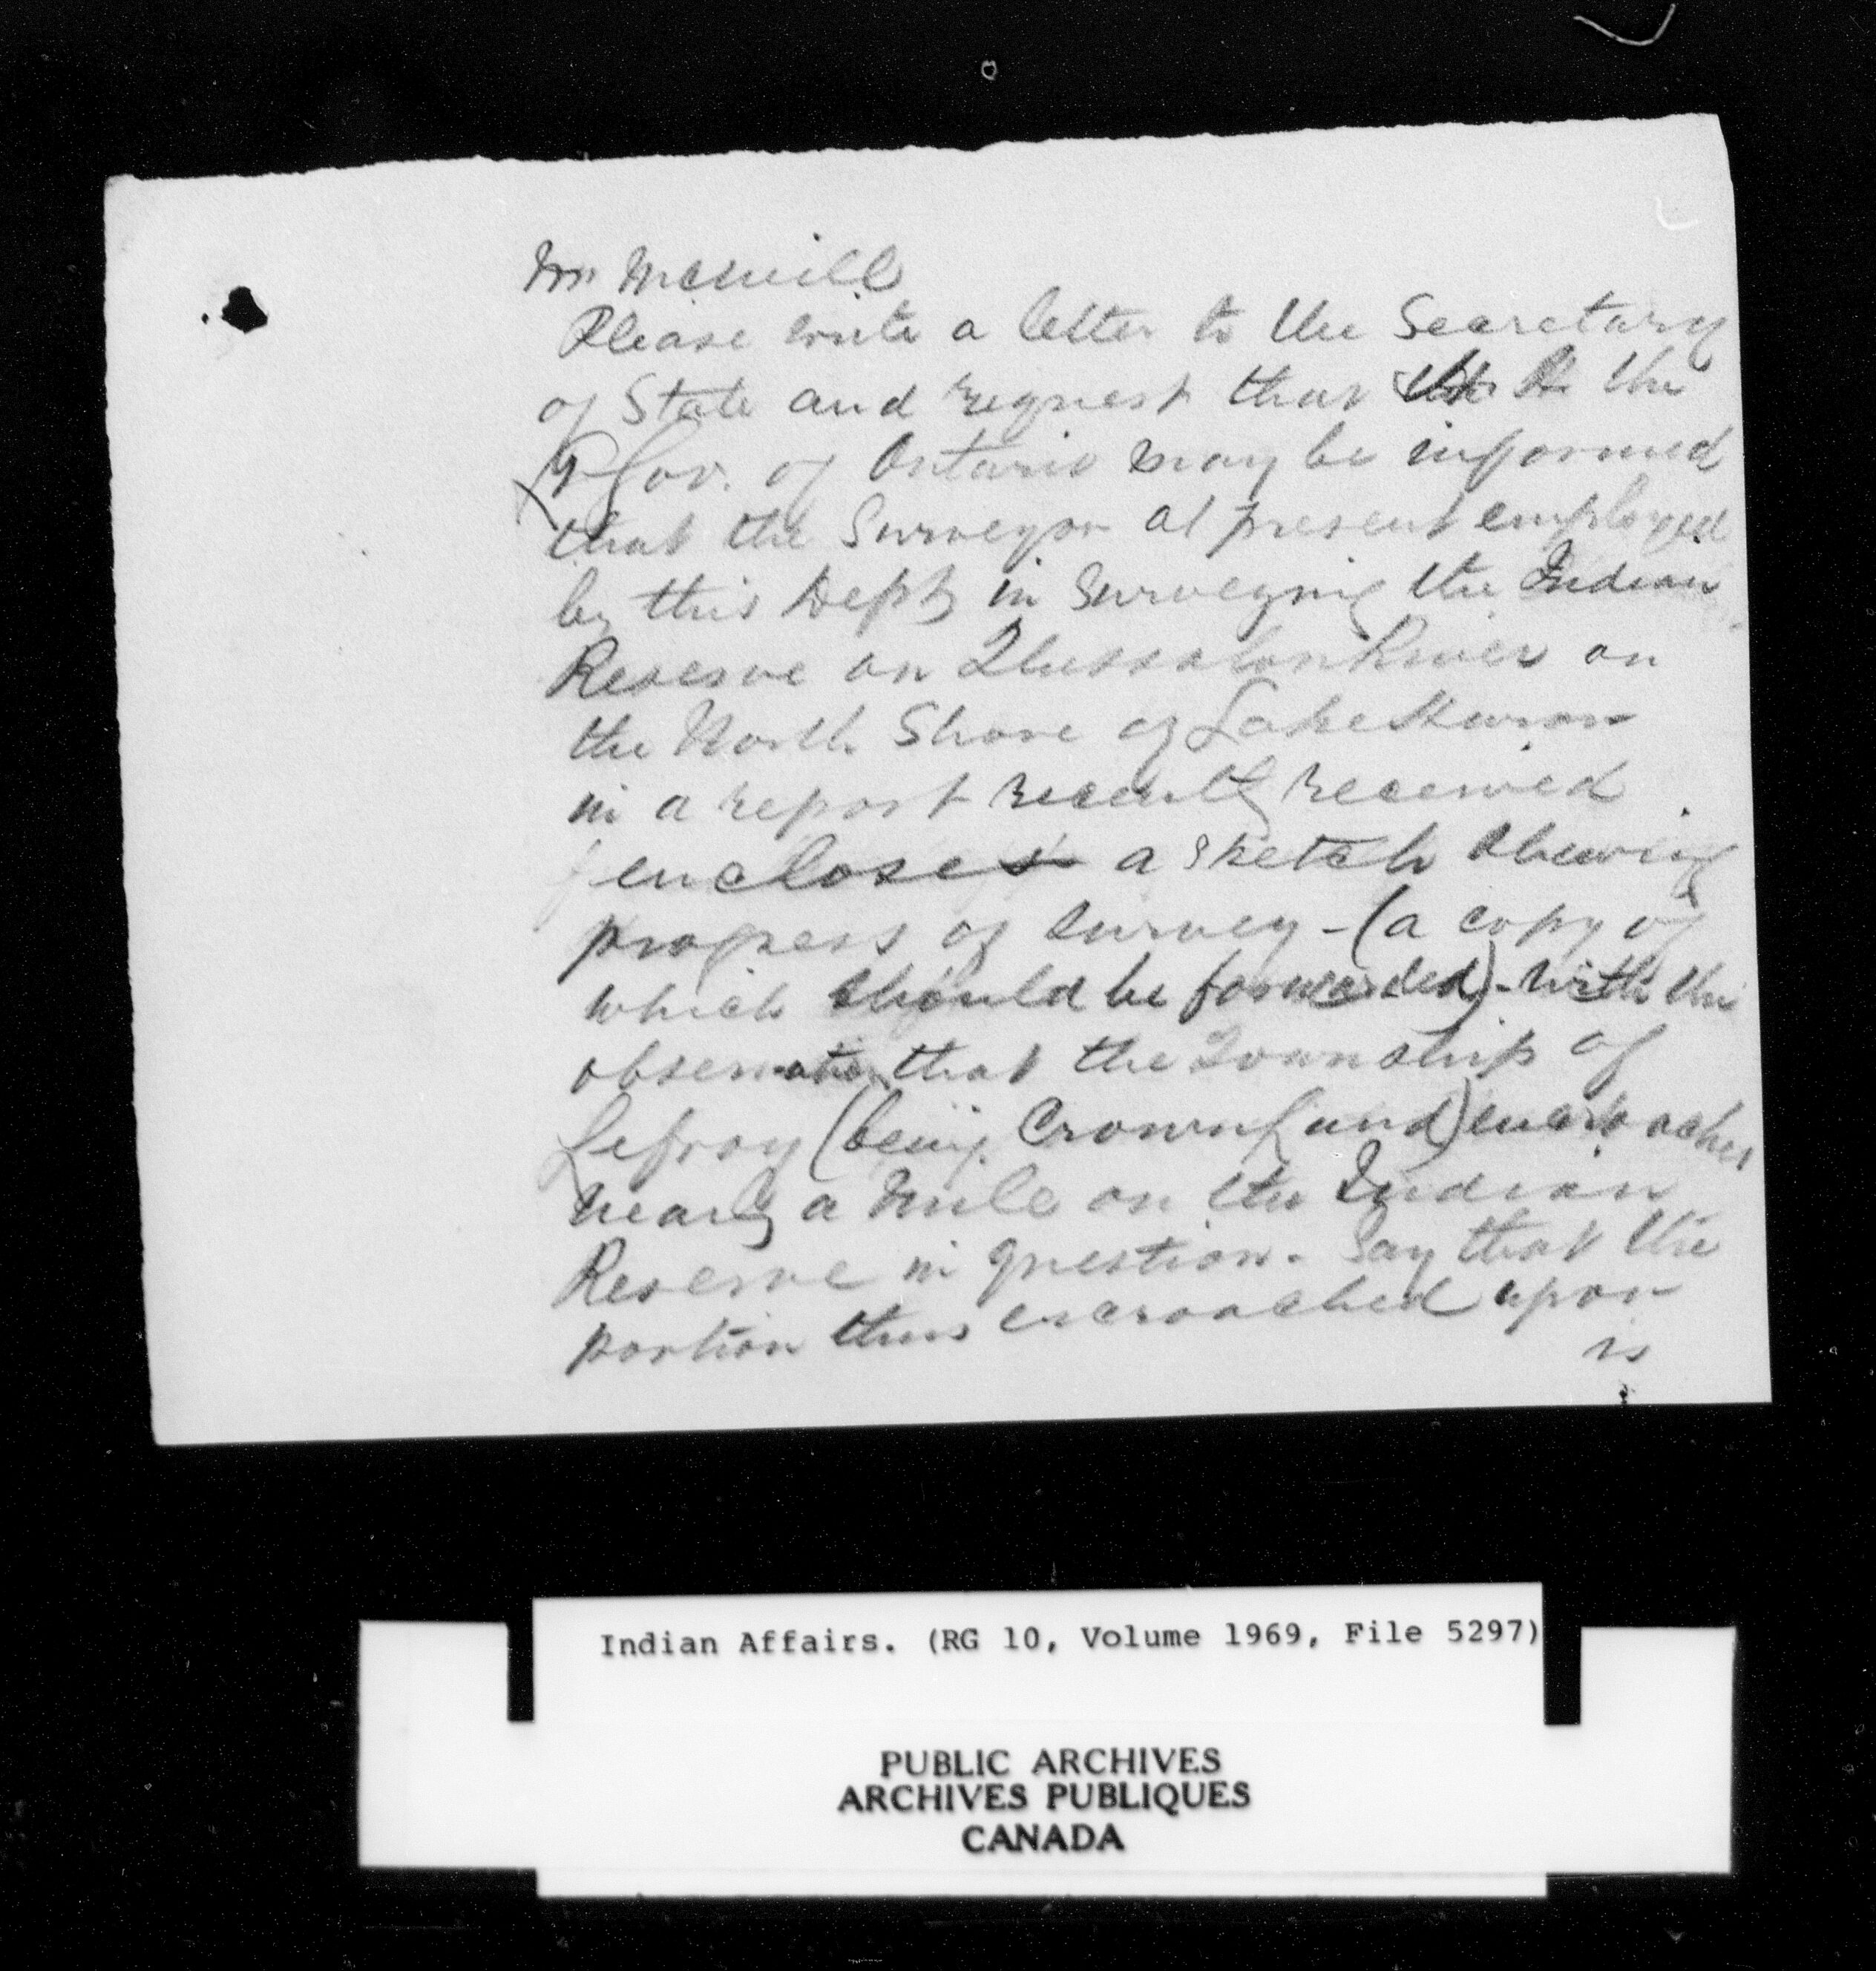 Mr McNeill
Please write a letter to the Secretary
of State and request that the
Gov. of Ontario may be informed
that the Surveyor at present employed
by this Dept in Surveying the Indian
Reserve on Thessalon River on
the North Shore of Lake Huron
in a report recently received
encloses a sketch shewing
progress of survey - (a copy of
which should be forwarded) - with the
observation that the Township of
Lefroy (being Crown Land) encroaches
nearly a mile on the Indian
Reserve in question. Say that the
portion thus encroached upon
is
Indian Affairs. (RG 10, Volume 1969, File 5297)
PUBLIC ARCHIVES
ARCHIVES PUBLIQUES
CANADA